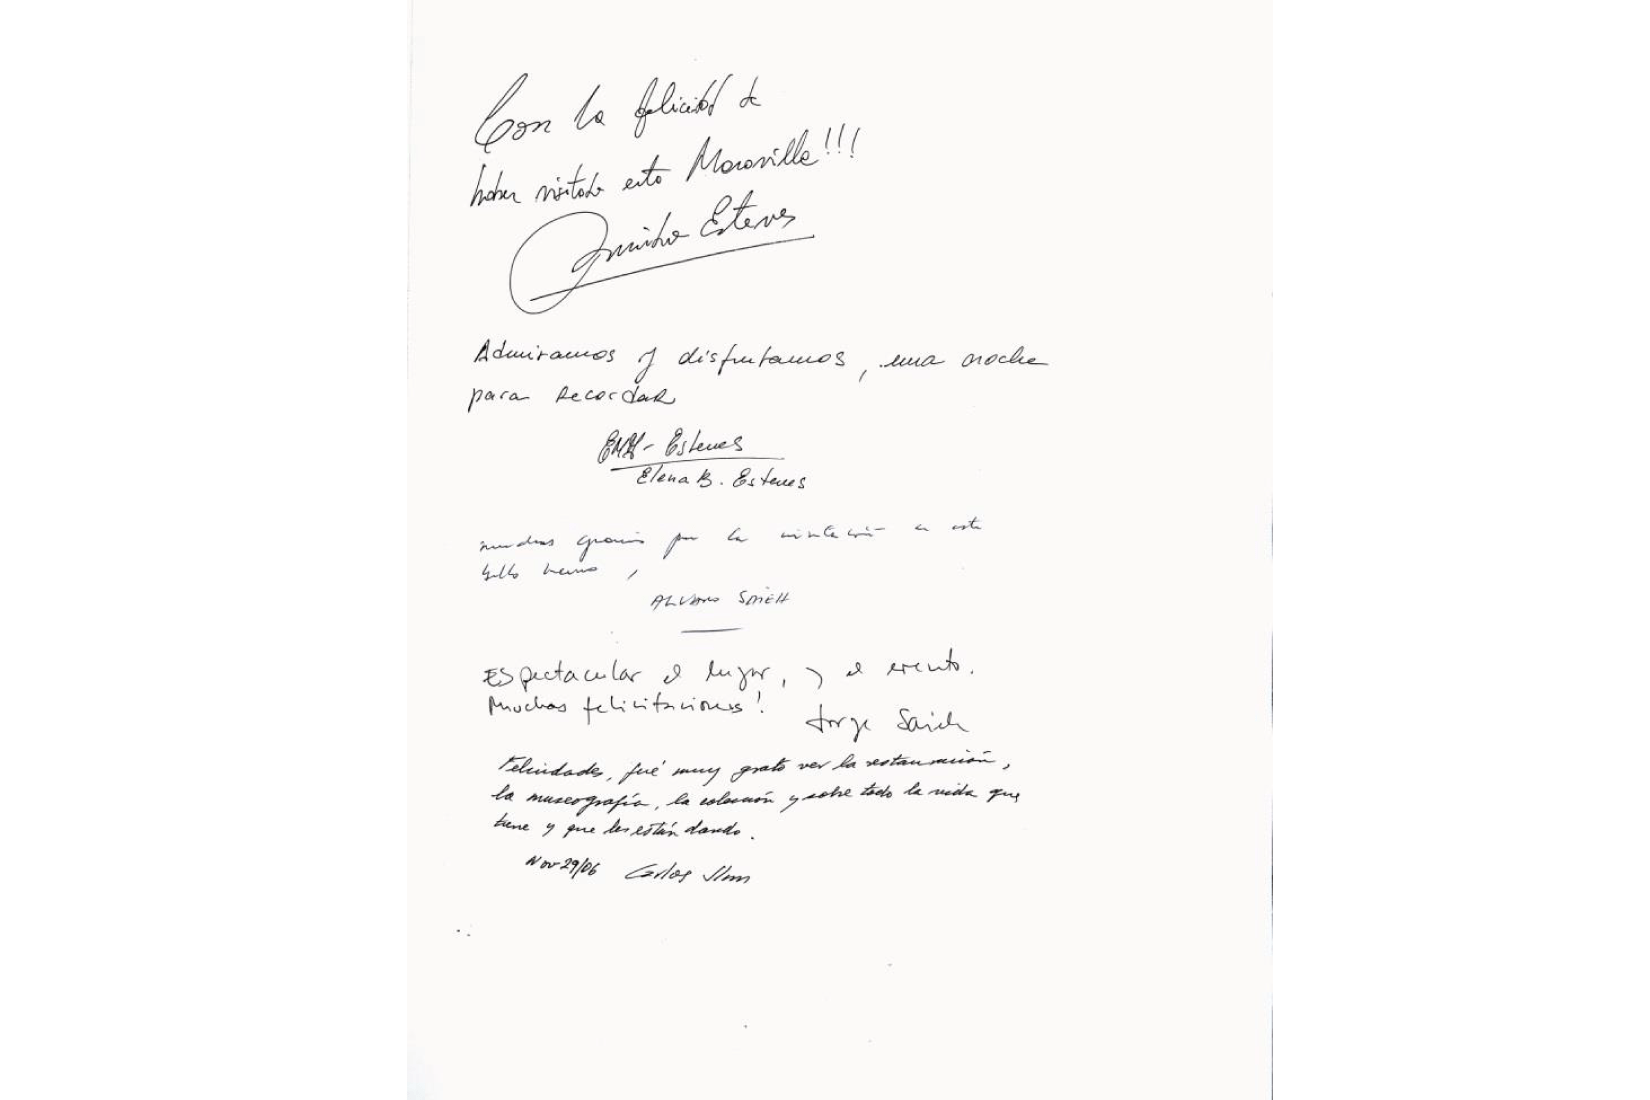 Con la felicidad de
haber visitado esta Maravilla!!!
Esteves
Admiramos y disfrutamos, una noche
para recordar
Esteves
Elena B. Esteves
muchas gracias por la invitación a este
bello museo,
ALVARO SAIEH
Espectacular el lugar, y el evento.
Muchas felicitaciones!
Jorge Saieh
Felicidades, fué muy grato ver la restauración,
la museografía, la colección y sobre todo la vida que
tiene y que les están dando.
Nov-29/06 Carlos Slim